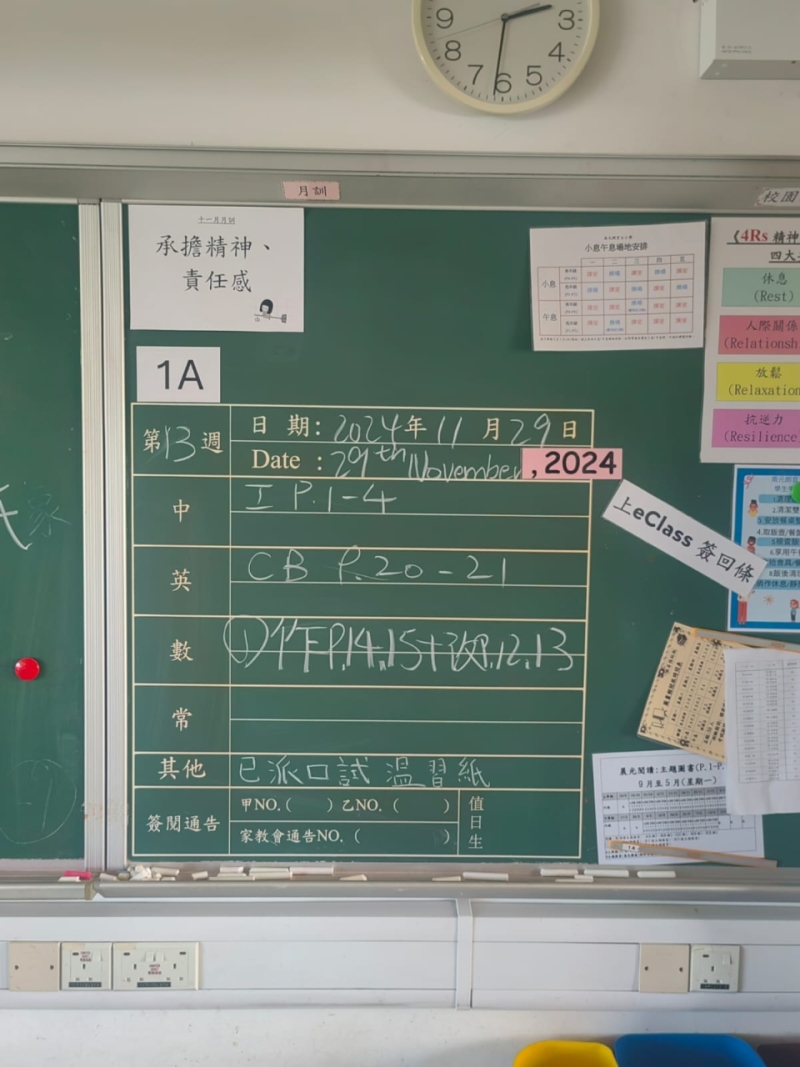 9 3
8 4
7 6 5
月訓
校園
十一月月訓
承擔精神、
責任感
小息午息場地安排
一 二 三 四 五
小息
午息
《4Rs 精神
四大
休息
(Rest)
人際關係
(Relationsh
放鬆
(Relaxation
抗逆力
(Resilience
1A
第13週
日 期: 2024年 11 月 29 日
Date : 29th November, 2024
中 工 P.1-4
英 CB P.20-21
數 ①作P.14,15+P.12,13
常
其他 已派口試溫習紙
簽閱通告 甲NO.( ) 乙NO. ( )
家教會通告NO. ( )
值日生
上eClass 簽回條
晨光閱讀:主題圖書(P.1-P.
9月至5月(星期一)